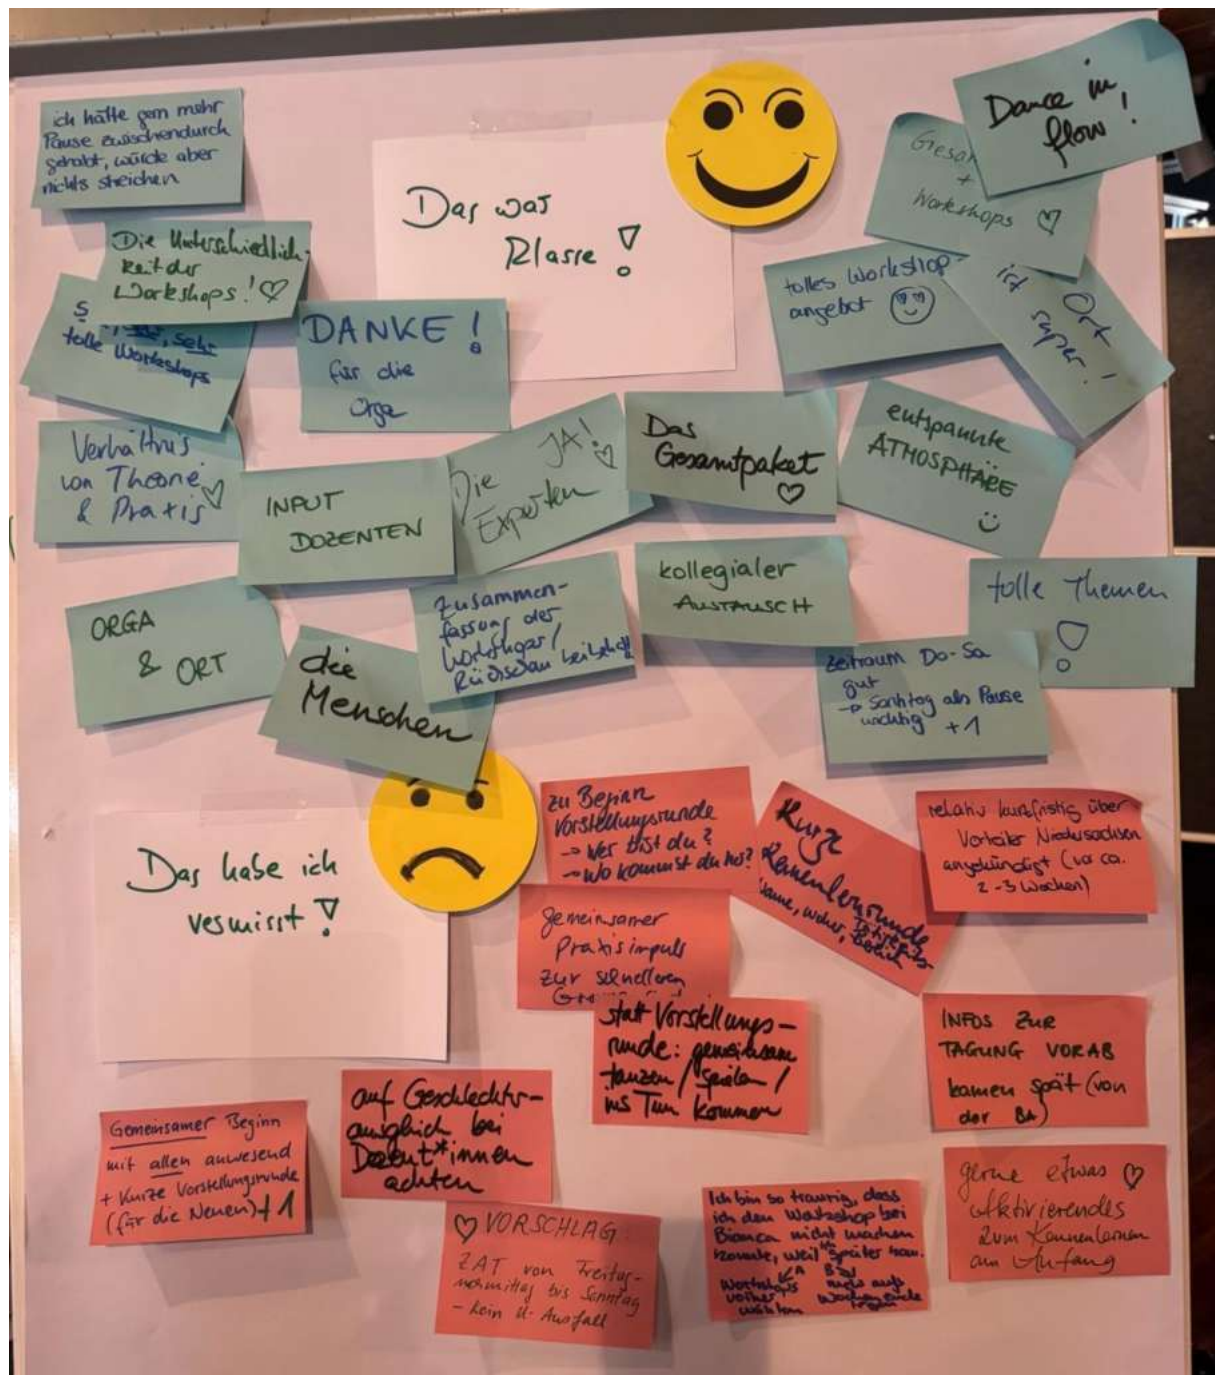 ich hätte gern mehr
Pause zwischendurch
gehabt, würde aber
nichts streichen
Das war
Klasse!
Dance in
flow!
+
Workshops ♡
Die Unterschiedlich-
keit der
Workshops! ♡
sehr
tolle Workshops
DANKE!
für die
Orga
tolles Workshop-
angebot
Ort
ist
super!
Verhältnis
von Theorie
& Praxis ♡
INPUT
DOZENTEN
JA! ♡
Die
Experten
Das
Gesamtpaket
♡
entspannte
ATMOSPHÄRE
ORGA
& ORT
die
Menschen
Zusammen-
fassung der
Workshops/
Rückschau
kollegialer
AUSTAUSCH
tolle Themen
!
Zeitraum Do-Sa
gut
→ Sonntag als Pause
wichtig +1
Das habe ich
vermisst!
zu Beginn
Vorstellungsrunde
→ Wer bist du?
→ Wo kommst du her?
Kurze
Kennenlernrunde
Name, woher, Tätigkeits-
Bereich
relativ kurzfristig über
Verteiler Niedersachsen
angekündigt (vor ca.
2-3 Wochen)
gemeinsamer
Praxisimpuls
zur schnelleren
statt Vorstellungs-
runde: gemeinsam
tanzen / spielen /
ins Tun kommen
INFOS ZUR
TAGUNG VORAB
kamen spät (von
der BA)
auf Geschlechter-
ausgleich bei
Dozent*innen
achten
Gemeinsamer Beginn
mit allen anwesend
+ Kurze Vorstellungsrunde
(für die Neuen) +1
♡ VORSCHLAG:
ZAT von Freitag-
nachmittag bis Sonntag
– kein U-Ausfall
Ich bin so traurig, dass
ich den Workshop bei
Bianca nicht machen
konnte, weil ich später kam.
A B
Workshops mehr aufs
vorher Wochenende
wählen legen
gerne etwas ♡
Aktivierendes
zum Kennenlernen
am Anfang